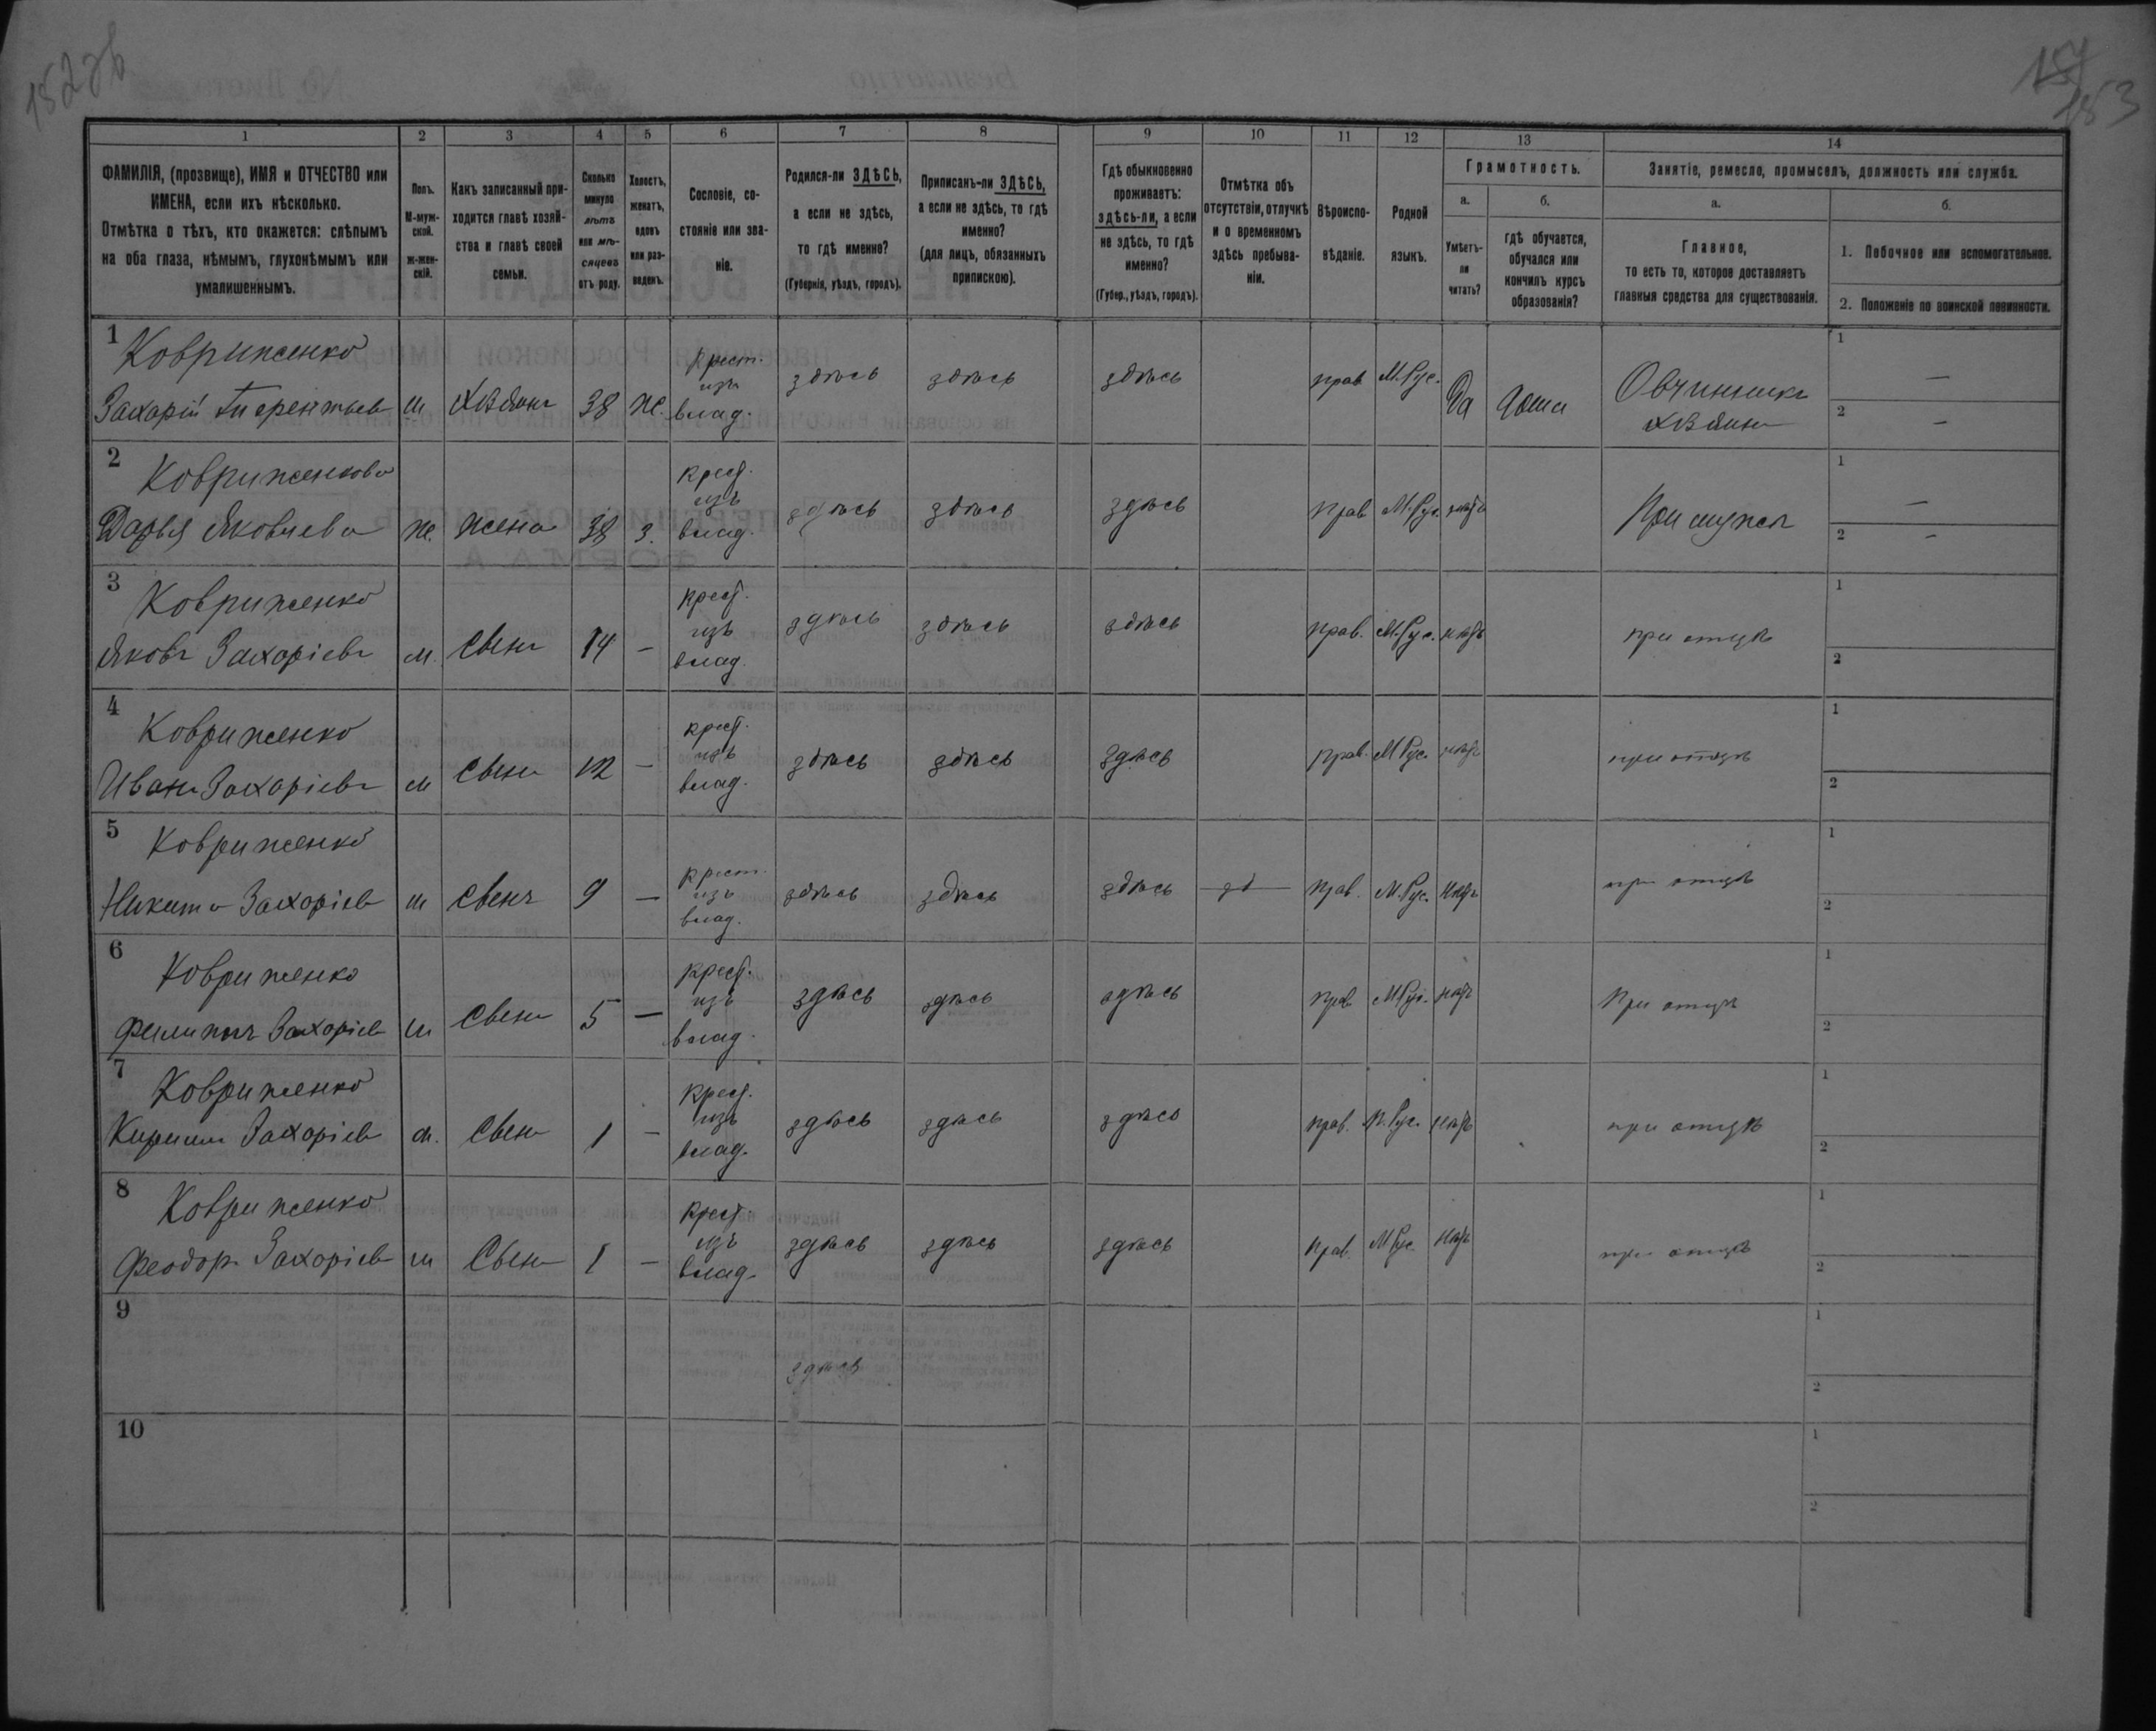 152 об
157
153
1 2 3 4 5 6 7 8 9 10 11 12 13 14
ФАМИЛІЯ, (прозвище), ИМЯ и ОТЧЕСТВО или
ИМЕНА, если ихъ нѣсколько.
Отмѣтка о тѣхъ, кто окажется: слѣпымъ
на оба глаза, нѣмымъ, глухонѣмымъ или
умалишеннымъ.
Полъ.
М-муж-
ской.
ж-жен-
скій.
Какъ записанный при-
ходится главѣ хозяй-
ства и главѣ своей
семьи.
Сколько
минуло
лѣтъ
или мѣ-
сяцевъ
отъ роду.
Холостъ,
женатъ,
вдовъ
или раз-
веденъ.
Сословіе, со-
стояніе или зва-
ніе.
Родился-ли ЗДѢСЬ,
а если не здѣсь,
то гдѣ именно?
(Губернія, уѣздъ, городъ).
Приписанъ-ли ЗДѢСЬ,
а если не здѣсь, то гдѣ
именно?
(для лицъ, обязанныхъ
припискою).
Гдѣ обыкновенно
проживаетъ:
здѣсь-ли, а если
не здѣсь, то гдѣ
именно?
(Губер., уѣздъ, городъ).
Отмѣтка объ
отсутствіи, отлучкѣ
и о временномъ
здѣсь пребыва-
ніи.
Вѣроиспо-
вѣданіе.
Родной
языкъ.
Грамотность.
а.
Умѣетъ-
ли
читать?
б.
гдѣ обучается,
обучался или
кончилъ курсъ
образованія?
Занятіе, ремесло, промыселъ, должность или служба.
а.
Главное,
то есть то, которое доставляетъ
главныя средства для существованія.
б.
1. Побочное или вспомогательное.
2. Положеніе по воинской повинности.
1 Ковриженко
Захарій Терентьев м хозяин 38 ж. крест. изъ влад. здѣсь здѣсь здѣсь прав М.Рус. Да дома Овчинникъ хозяин 1 — 2 —
2 Ковриженкова
Дарья Яковлева ж. жена 38 з. крест. изъ влад. здѣсь здѣсь здѣсь прав М.Рус. нѣтъ При мужѣ 1 — 2 —
3 Ковриженко
Яковъ Захаріевъ м. сынъ 14 — крест. изъ влад. здѣсь здѣсь здѣсь прав. М.Рус. нѣтъ при отцѣ 1 2
4 Ковриженко
Иванъ Захаріевъ м сынъ 12 — крест. изъ влад. здѣсь здѣсь здѣсь прав. М Рус. нѣтъ при отцѣ 1 2
5 Ковриженко
Никита Захаріев м сынъ 9 — крест. изъ влад. здѣсь здѣсь здѣсь прав. М.Рус. нѣтъ при отцѣ 1 2
6 Ковриженко
Филипъ Захаріев м сынъ 5 — крест. изъ влад. здѣсь здѣсь здѣсь прав М Рус. нѣтъ При отцѣ 1 2
7 Ковриженко
Кирилл Захаріев м. сынъ 1 — крест. изъ влад. здѣсь здѣсь здѣсь прав. М.Рус. нѣтъ при отцѣ 1 2
8 Ковриженко
Феодоръ Захаріев м Сынъ 1 — крест. изъ влад. здѣсь здѣсь здѣсь прав. М Рус. нѣтъ при отцѣ 1 2
9 здѣсь 1 2
10 1 2